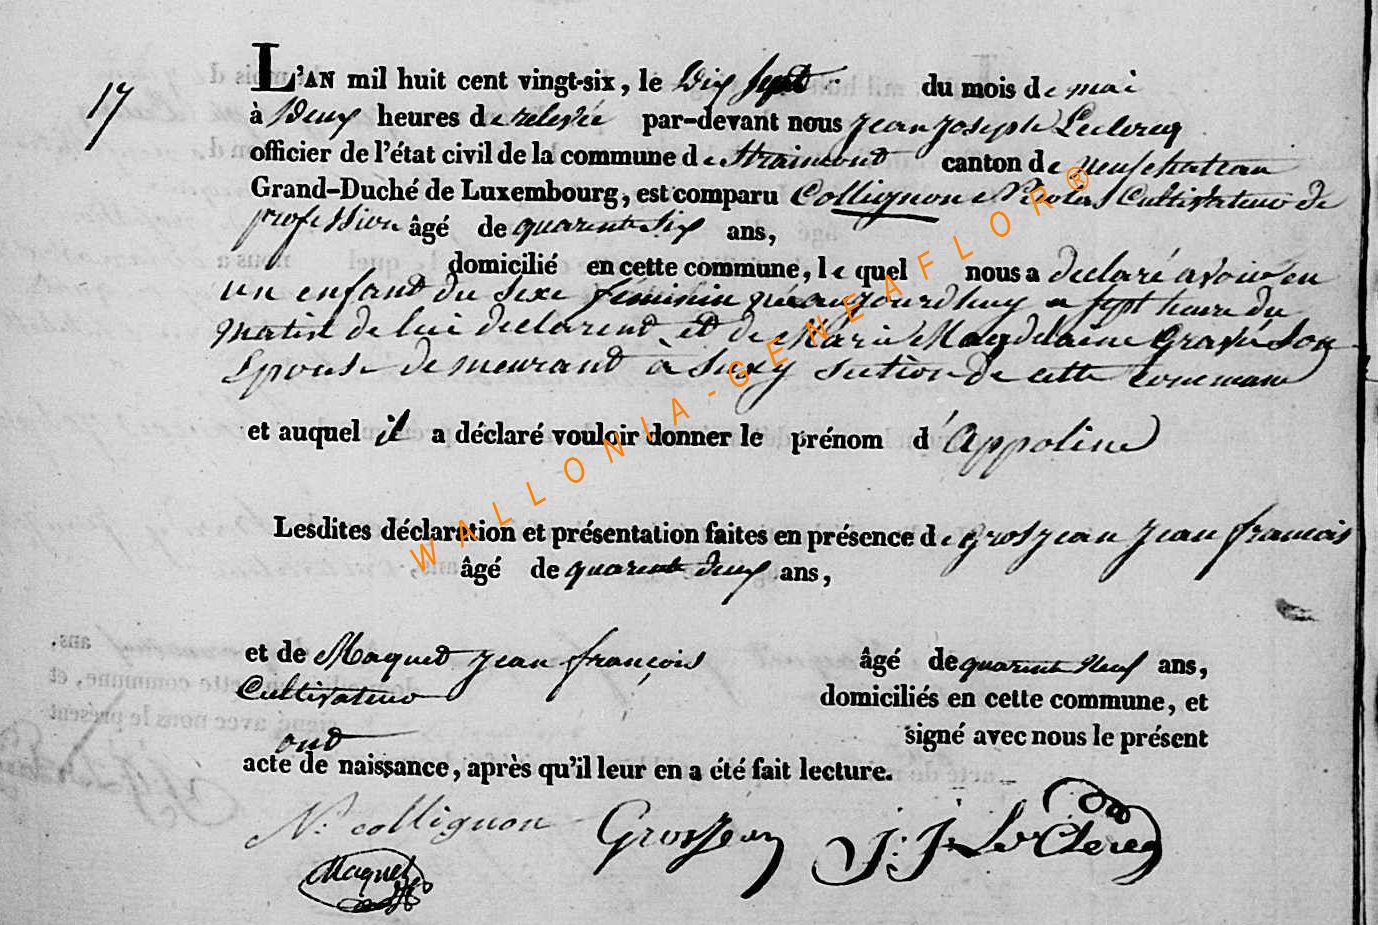 17
L'AN mil huit cent vingt-six, le Dix Sept du mois de mai
à Deux heures de relevée par-devant nous jean joseph Leclercq
officier de l'état civil de la commune de Straimont canton de neufchateau
Grand-Duché de Luxembourg, est comparu Collignon Nicolas Cultivateur de
profession âgé de quarente Six ans,
domicilié en cette commune, le quel nous a declaré avoir eu
un enfant du sexe féminin né aujourdhuy a sept heure du
matin de lui declarent et de Marie Magdelaine Gravé Son
Epouse demeurant à Suxy section de cette commune
et auquel il a déclaré vouloir donner le prénom d'Appoline
Lesdites déclaration et présentation faites en présence de grosjean jean francois
âgé de quarente deux ans,
et de Maquet jean françois âgé de quarente Neuf ans,
Cultivateur domiciliés en cette commune, et
ont signé avec nous le présent
acte de naissance, après qu'il leur en a été fait lecture.
N. collignon Grosjean J. J. LeClercq
Maquet
WALLONIA-GENEAFLOR®